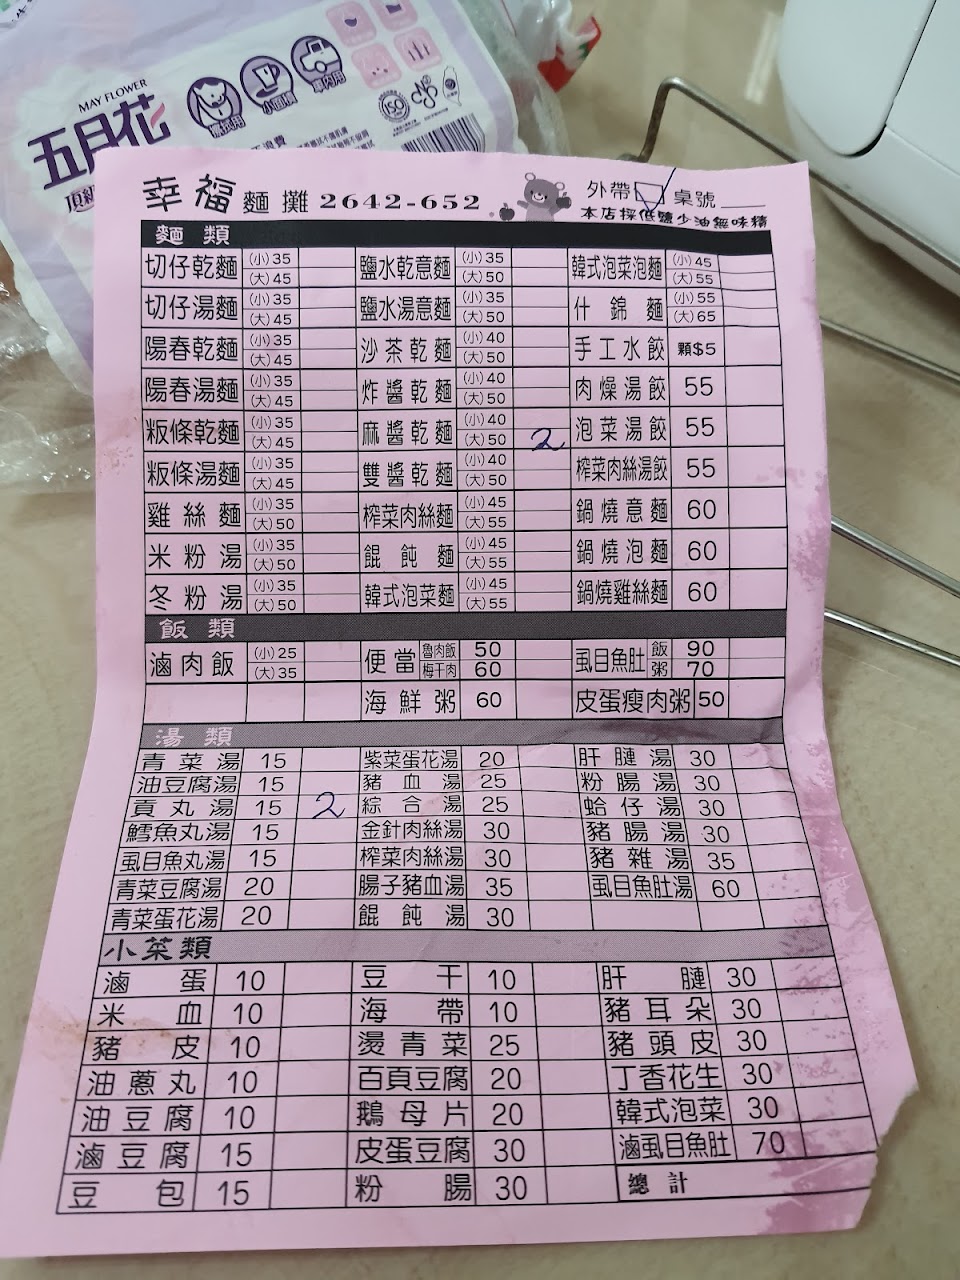 MAY FLOWER
五月花
頂級
擦拭用
小面積
車內用
ISO
幸福麵攤 2642-652
外帶 桌號
本店採低鹽少油無味精
麵 類
切仔乾麵 (小)35 (大)45 鹽水乾意麵 (小)35 (大)50 韓式泡菜泡麵 (小)45 (大)55
切仔湯麵 (小)35 (大)45 鹽水湯意麵 (小)35 (大)50 什錦麵 (小)55 (大)65
陽春乾麵 (小)35 (大)45 沙茶乾麵 (小)40 (大)50 手工水餃 顆$5
陽春湯麵 (小)35 (大)45 炸醬乾麵 (小)40 (大)50 肉燥湯餃 55
粄條乾麵 (小)35 (大)45 麻醬乾麵 (小)40 (大)50 2 泡菜湯餃 55
粄條湯麵 (小)35 (大)45 雙醬乾麵 (小)40 (大)50 榨菜肉絲湯餃 55
雞絲麵 (小)35 (大)50 榨菜肉絲麵 (小)45 (大)55 鍋燒意麵 60
米粉湯 (小)35 (大)50 餛飩麵 (小)45 (大)55 鍋燒泡麵 60
冬粉湯 (小)35 (大)50 韓式泡菜麵 (小)45 (大)55 鍋燒雞絲麵 60
飯 類
滷肉飯 (小)25 (大)35 便當 魯肉飯 50 梅干肉 60 虱目魚肚 飯 90 粥 70
海鮮粥 60 皮蛋瘦肉粥 50
湯 類
青菜湯 15 紫菜蛋花湯 20 肝腱湯 30
油豆腐湯 15 豬血湯 25 粉腸湯 30
貢丸湯 15 2 綜合湯 25 蛤仔湯 30
鱈魚丸湯 15 金針肉絲湯 30 豬腸湯 30
虱目魚丸湯 15 榨菜肉絲湯 30 豬雜湯 35
青菜豆腐湯 20 腸子豬血湯 35 虱目魚肚湯 60
青菜蛋花湯 20 餛飩湯 30
小菜類
滷蛋 10 豆干 10 肝腱 30
米血 10 海帶 10 豬耳朵 30
豬皮 10 燙青菜 25 豬頭皮 30
油蔥丸 10 百頁豆腐 20 丁香花生 30
油豆腐 10 鵝母片 20 韓式泡菜 30
滷豆腐 15 皮蛋豆腐 30 滷虱目魚肚 70
豆包 15 粉腸 30 總計